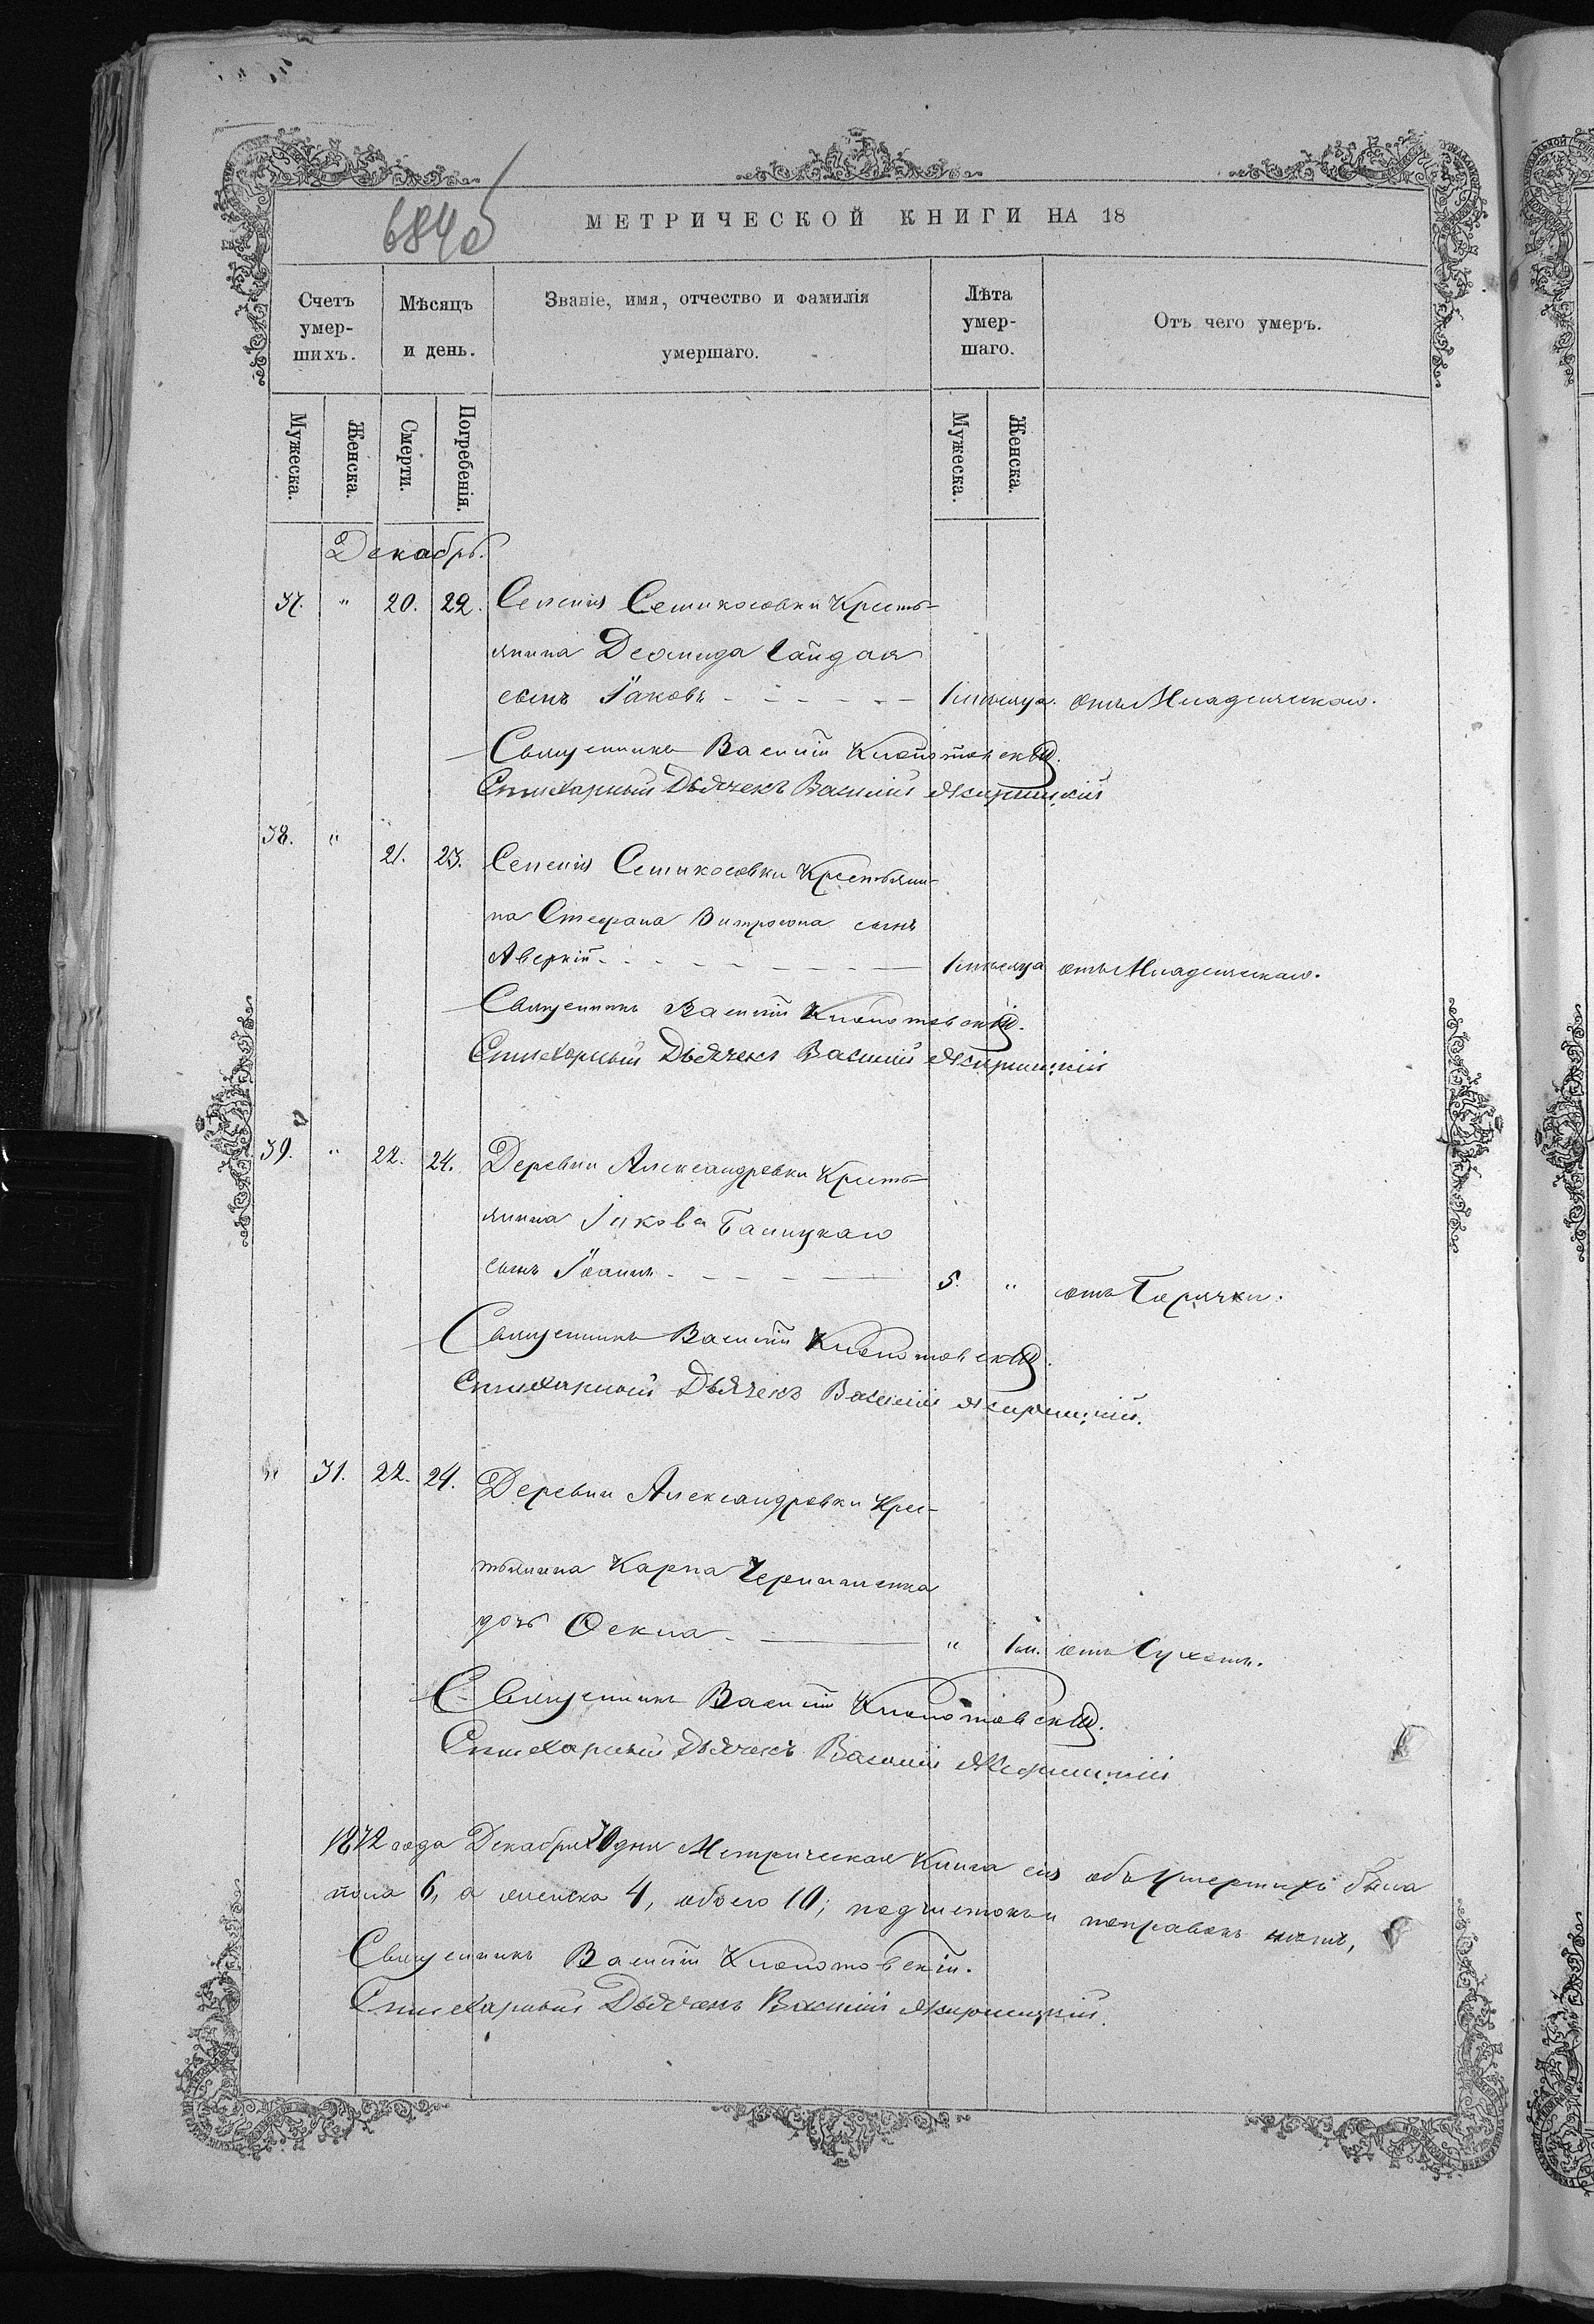 684 об
МЕТРИЧЕСКОЙ КНИГИ НА 18
Счетъ умер-шихъ.
Мѣсяцъ и день.
Званіе, имя, отчество и фамилія умершаго.
Лѣта умер-шаго.
Отъ чего умеръ.
Мужеска. Женска. Смерти. Погребенія. Мужеска. Женска.
Декабрь.
37. " 20. 22. Селенія Семикосовки Кресть-
янина Деомида Гайдая
сынъ Іаковъ - - - - - 1 мѣсяца. отъ Младенческаго.
Священникъ Василій Клопотовскій.
Стихарный Дьячекъ Василій
38. " 21. 23. Селенія Семикосовки Крестьяни-
на Стефана сынъ
Аверкій - - - - - 1 мѣсяца отъ Младенческаго.
Священникъ Василій Клопотовскій.
Стихарный Дьячекъ Василій
39. " 22. 24. Деревни Александровки Кресть-
янина Іакова
сынъ Іоаннъ - - - - - 5. " отъ Горячки.
Священникъ Василій Клопотовскій.
Стихарный Дьячекъ Василій
" 31. 22. 24. Деревни Александровки Крес-
тьянина Карпа
дочь Ѳекла - " 1 м. отъ Сухотъ.
Священникъ Василій Клопотовскій.
Стихарный Дьячекъ Василій
1872 года Декабря 30 дня Метрическая Книга сія объ Умершихъ была
пола 6, а женска 4, обоего 10; подчистокъ и поправокъ нѣтъ,
Священникъ Василій Клопотовскій.
Стихарный Дьячекъ Василій